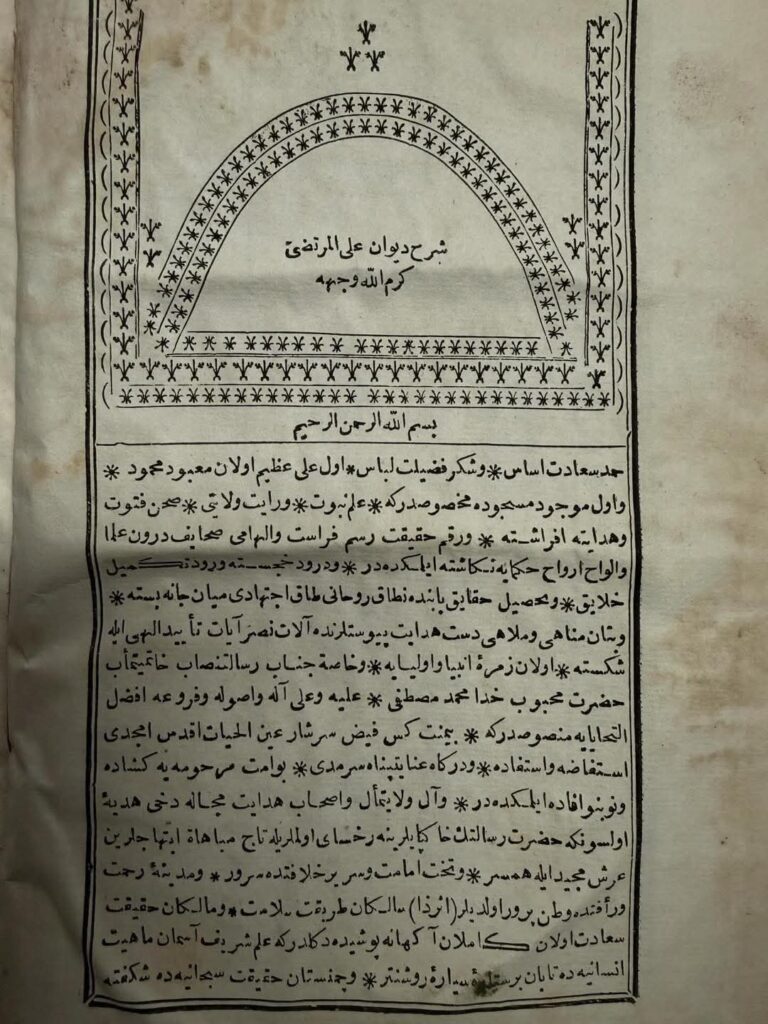 شرح ديوان على المرتضى
كرم الله وجهه
بسم الله الرحمن الرحيم
حمد سعادت اساس * وشكر فضيلت لباس * اول على عظيم اولان معبود محمود *
واول موجود مسجوده مخصوصدركه * علم نبوت * ورايت ولايتى * صحن فتوت
وهدايته افراشته * ورقم حقيقت رسم فراست والهامى صحايف درون علما
والواح ارواح حكمايه نكاشته ايلمكده در * ودرود خجسته ورود تكميل
خلايق * وتحصيل حقايق يا بنده نطاق روحانى طاق اجتهادى ميان جانه بسته *
وبتان مناهى وملاهى دست هدايت پيوستلرنده آلات نصر آيات تأييد الهى ايله
شكسته * اولان زمرۀ انبيا واوليايه * وخاصة جناب رسالتنصاب خاتميتمأب
حضرت محبوب خدا محمد مصطفى * عليه وعلى آله واصوله وفروعه افضل
التحايايه منصوصدركه * يمنت كس فيض سرشار عين الحيات اقدس امجدى
استفاضه واستفاده * ودركاه عنايتپناه سرمدى * بو امت مرحومه يه كشاده
ونوبنو افاده ايلمكده در * وآل ولايتمأل واصحاب هدايت مجاله دخى هديۀ
اولسونكه حضرت رسالتك خاكپايلرينه رخساى اولملريله تاج مباهاة ابتهاجلرين
عرش مجيد ايله همسر * وتخت امامت وسرير خلافتده سرور * ومدينۀ رحمت
ورأفتده وطن پرور اولديلر (اثر ذا) سالكان طريقت سلامت * ومالكان حقيقت
سعادت اولان كاملان آكهانه پوشيده دكلدركه علم شريف آسمان ماهيت
انسانيه ده تابان بر ستارۀ سيارۀ روشنتر * وچمنستان حقيقت سبحانيه ده شكفته